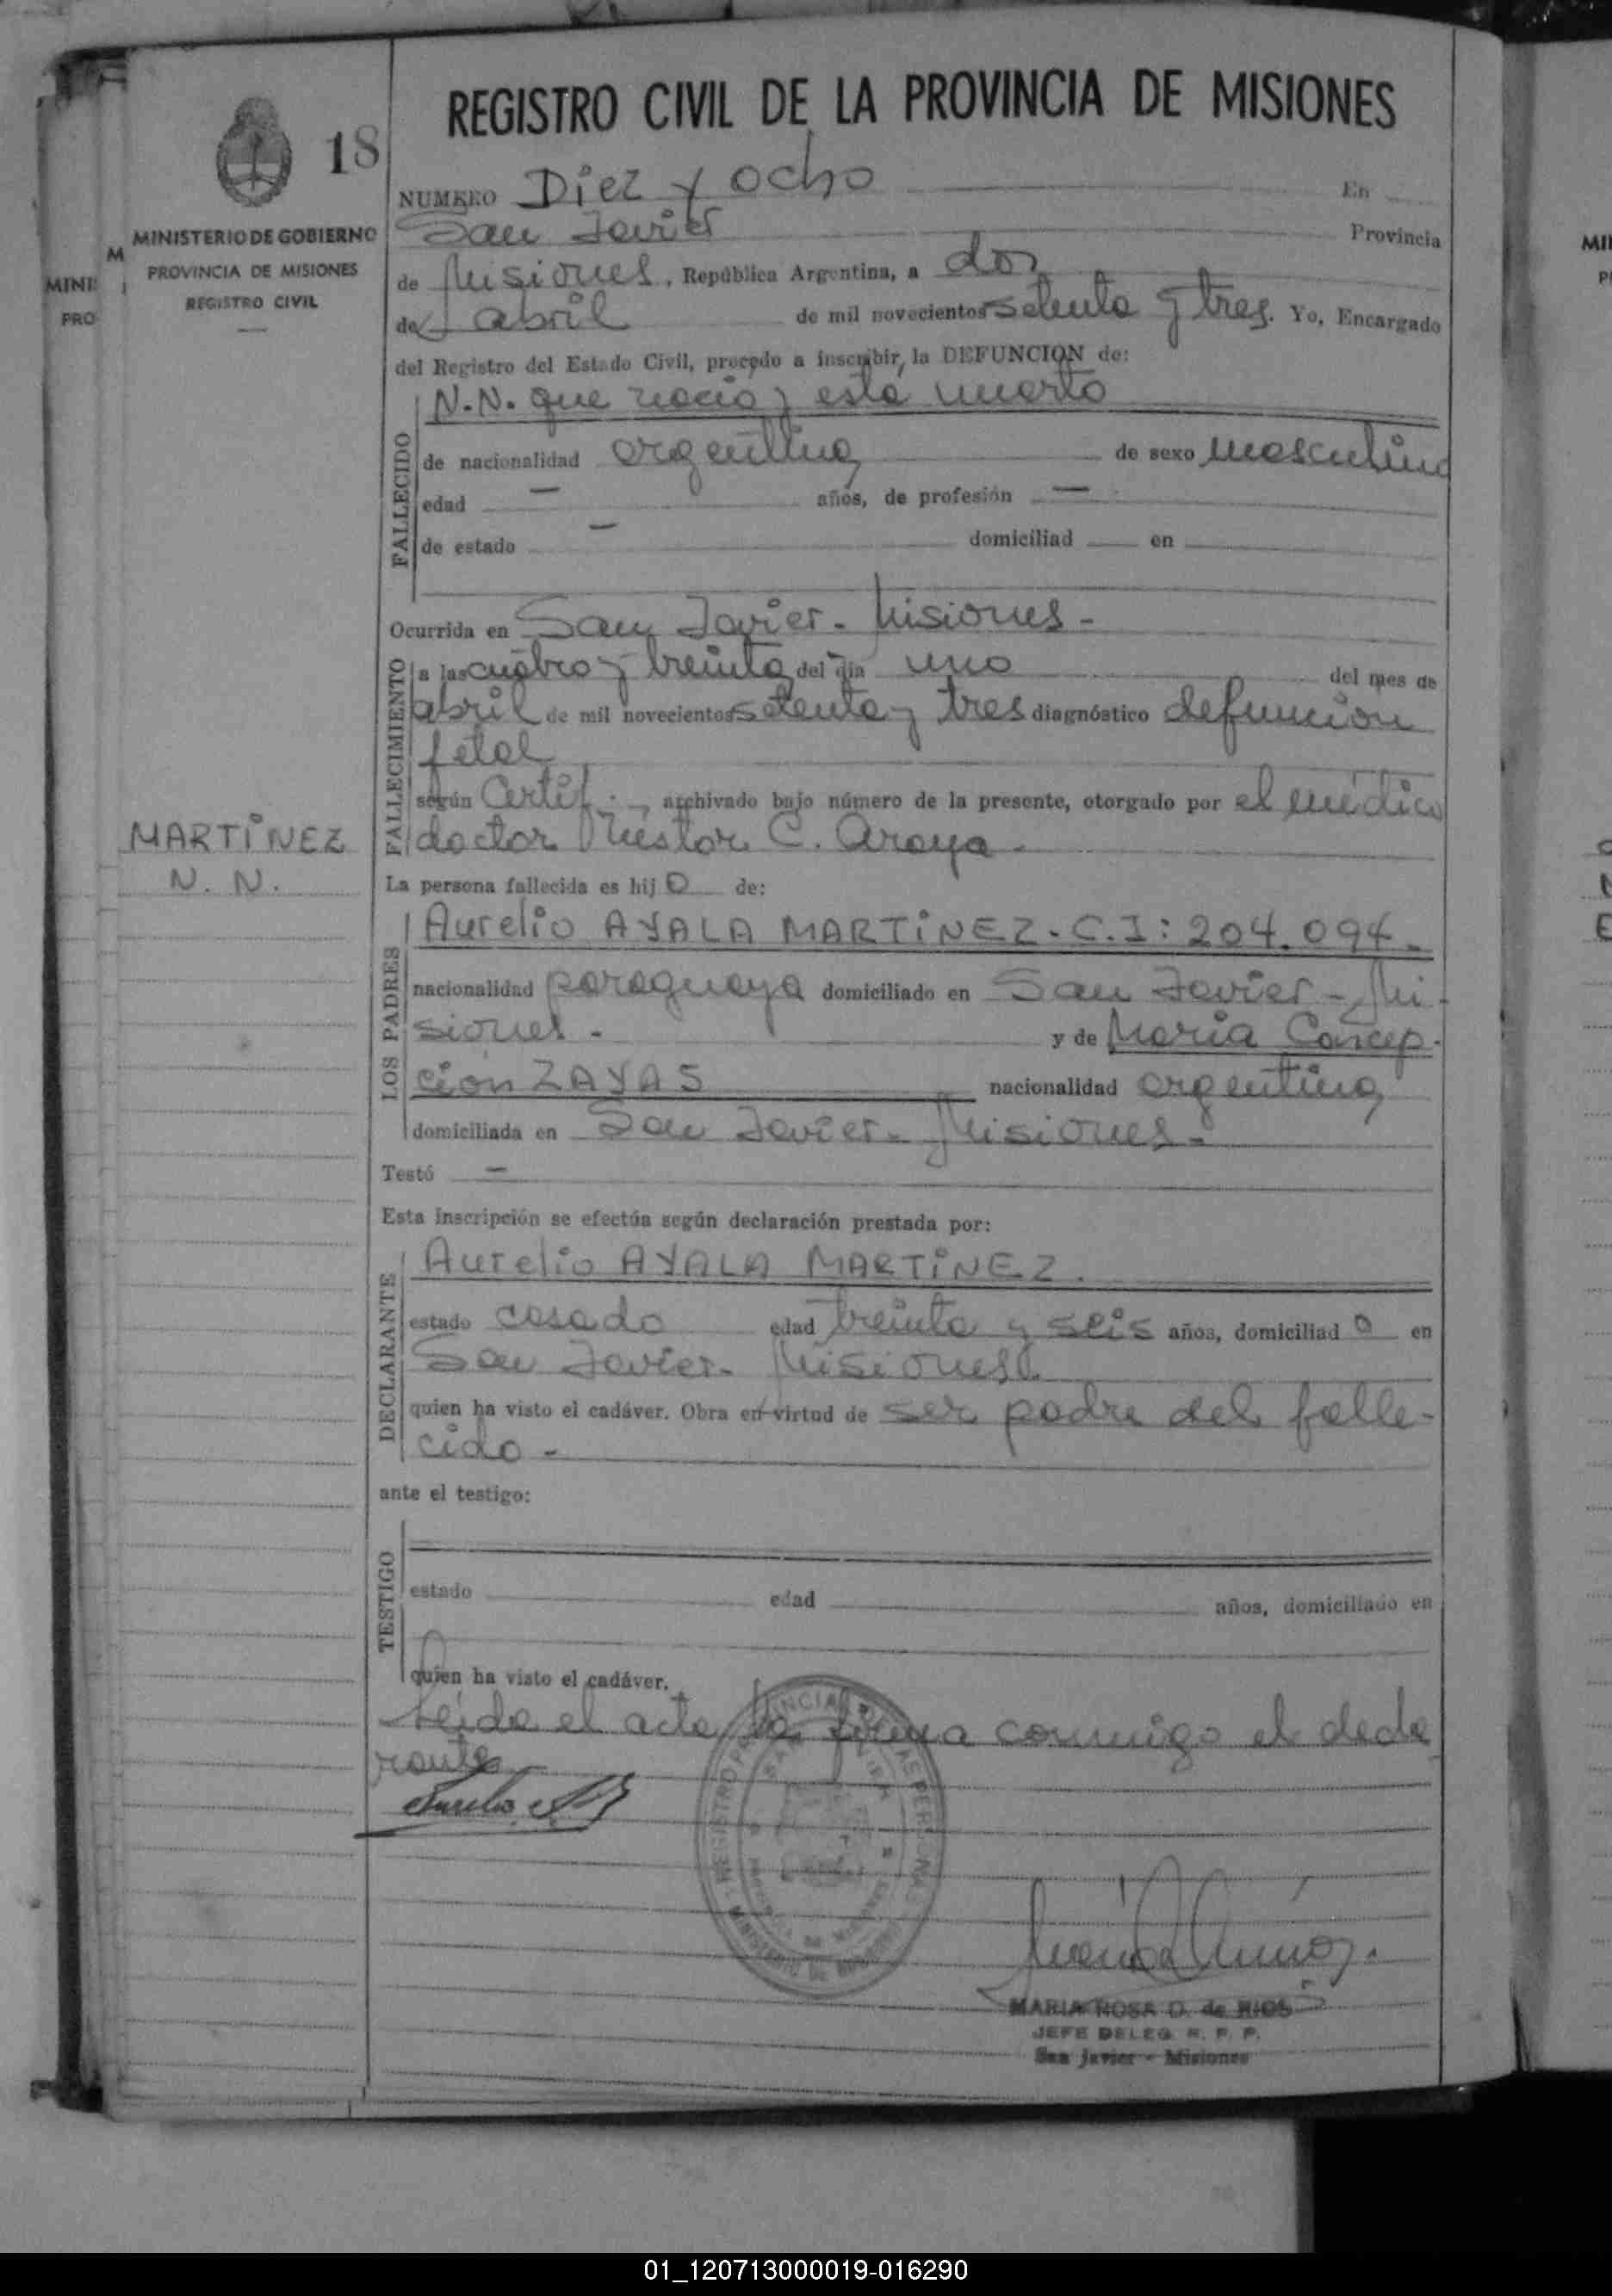 REGISTRO CIVIL DE LA PROVINCIA DE MISIONES
18
MINISTERIO DE GOBIERNO
PROVINCIA DE MISIONES
REGISTRO CIVIL
M
MINI
PRO
MARTÍNEZ
N. N.
NUMERO Diez y ocho En
San Javier Provincia
de Misiones, República Argentina, a dos
de abril de mil novecientos setenta y tres. Yo, Encargado
del Registro del Estado Civil, procedo a inscribir, la DEFUNCION de:
FALLECIDO
N.N. que nació y esta muerto
de nacionalidad argentina de sexo masculino
edad — años, de profesión —
de estado — domiciliad en
Ocurrida en San Javier - Misiones -
FALLECIMIENTO
a las cuatro y treinta del dia uno del mes de
abril de mil novecientos setenta y tres diagnóstico defuncion
fetal
según Certif. archivado bajo número de la presente, otorgado por el médico
doctor Nestor C. Araya.
La persona fallecida es hijo de:
LOS PADRES
Aurelio AYALA MARTÍNEZ. C.I: 204.094.
nacionalidad paraguaya domiciliado en San Javier - Mi-
siones - y de María Concep-
ción ZAYAS nacionalidad argentina
domiciliada en San Javier - Misiones -
Testó —
Esta inscripción se efectúa según declaración prestada por:
DECLARANTE
Aurelio AYALA MARTÍNEZ.
estado casado edad treinta y seis años, domiciliado en
San Javier - Misiones
quien ha visto el cadáver. Obra en virtud de ser padre del falle-
cido -
ante el testigo:
TESTIGO
estado edad años, domiciliado en
quien ha visto el cadáver.
Leída el acta la firma conmigo el decla
rante
Aurelio
MARIA ROSA D. de RIOS
JEFE DELEG. R. P. P.
San Javier - Misiones
MII
01_120713000019-016290